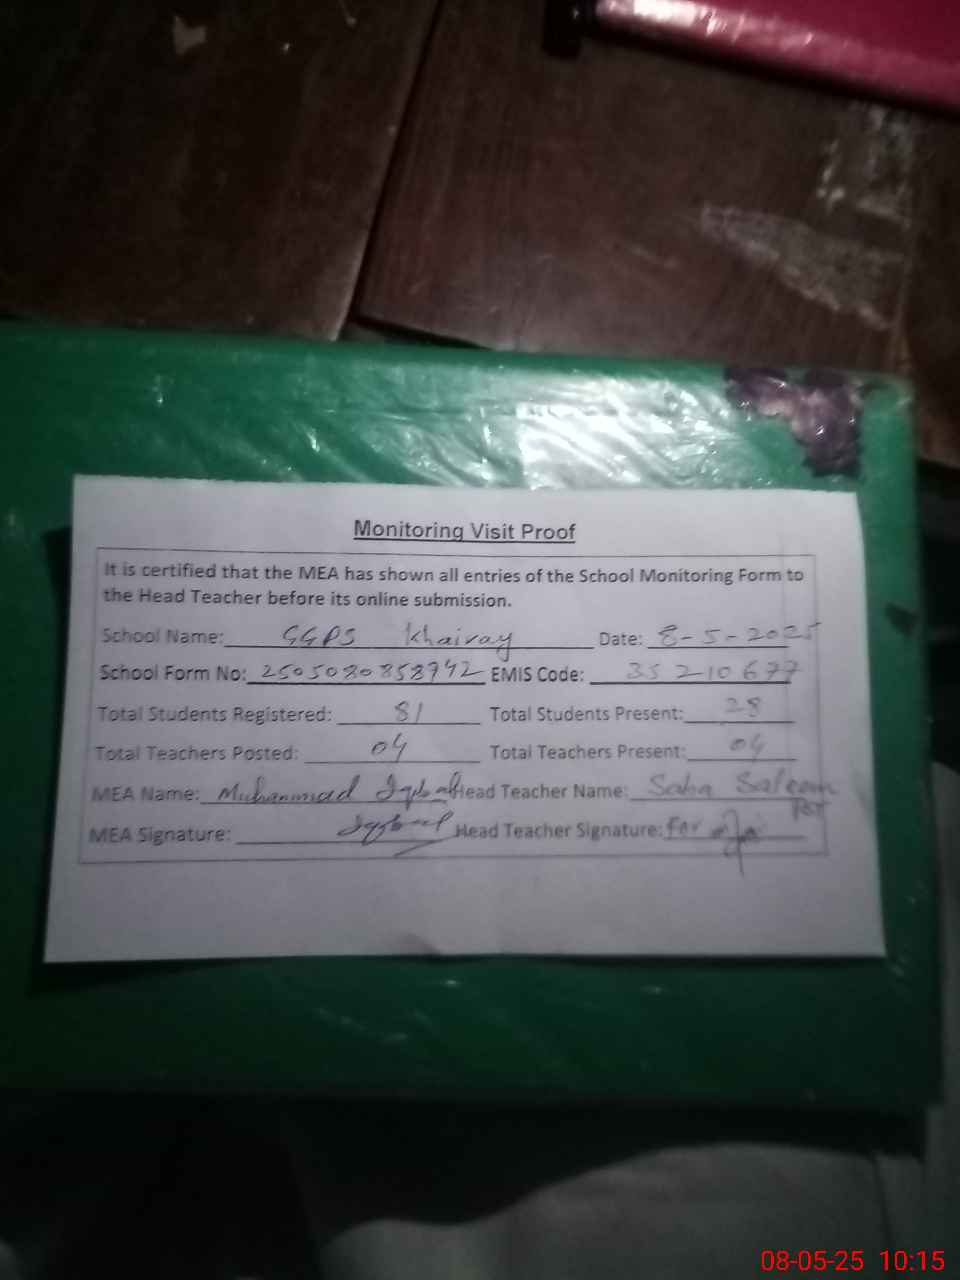 Monitoring Visit Proof
It is certified that the MEA has shown all entries of the School Monitoring Form to
the Head Teacher before its online submission.
School Name: GGPS Khairay Date: 8-5-2025
School Form No: 2505080858942 EMIS Code: 35210677
Total Students Registered: 81 Total Students Present: 28
Total Teachers Posted: 04 Total Teachers Present: 04
MEA Name: Muhammad Iqbal Head Teacher Name: Saba Saleem
PST
MEA Signature: Iqbal Head Teacher Signature: For
08-05-25 10:15